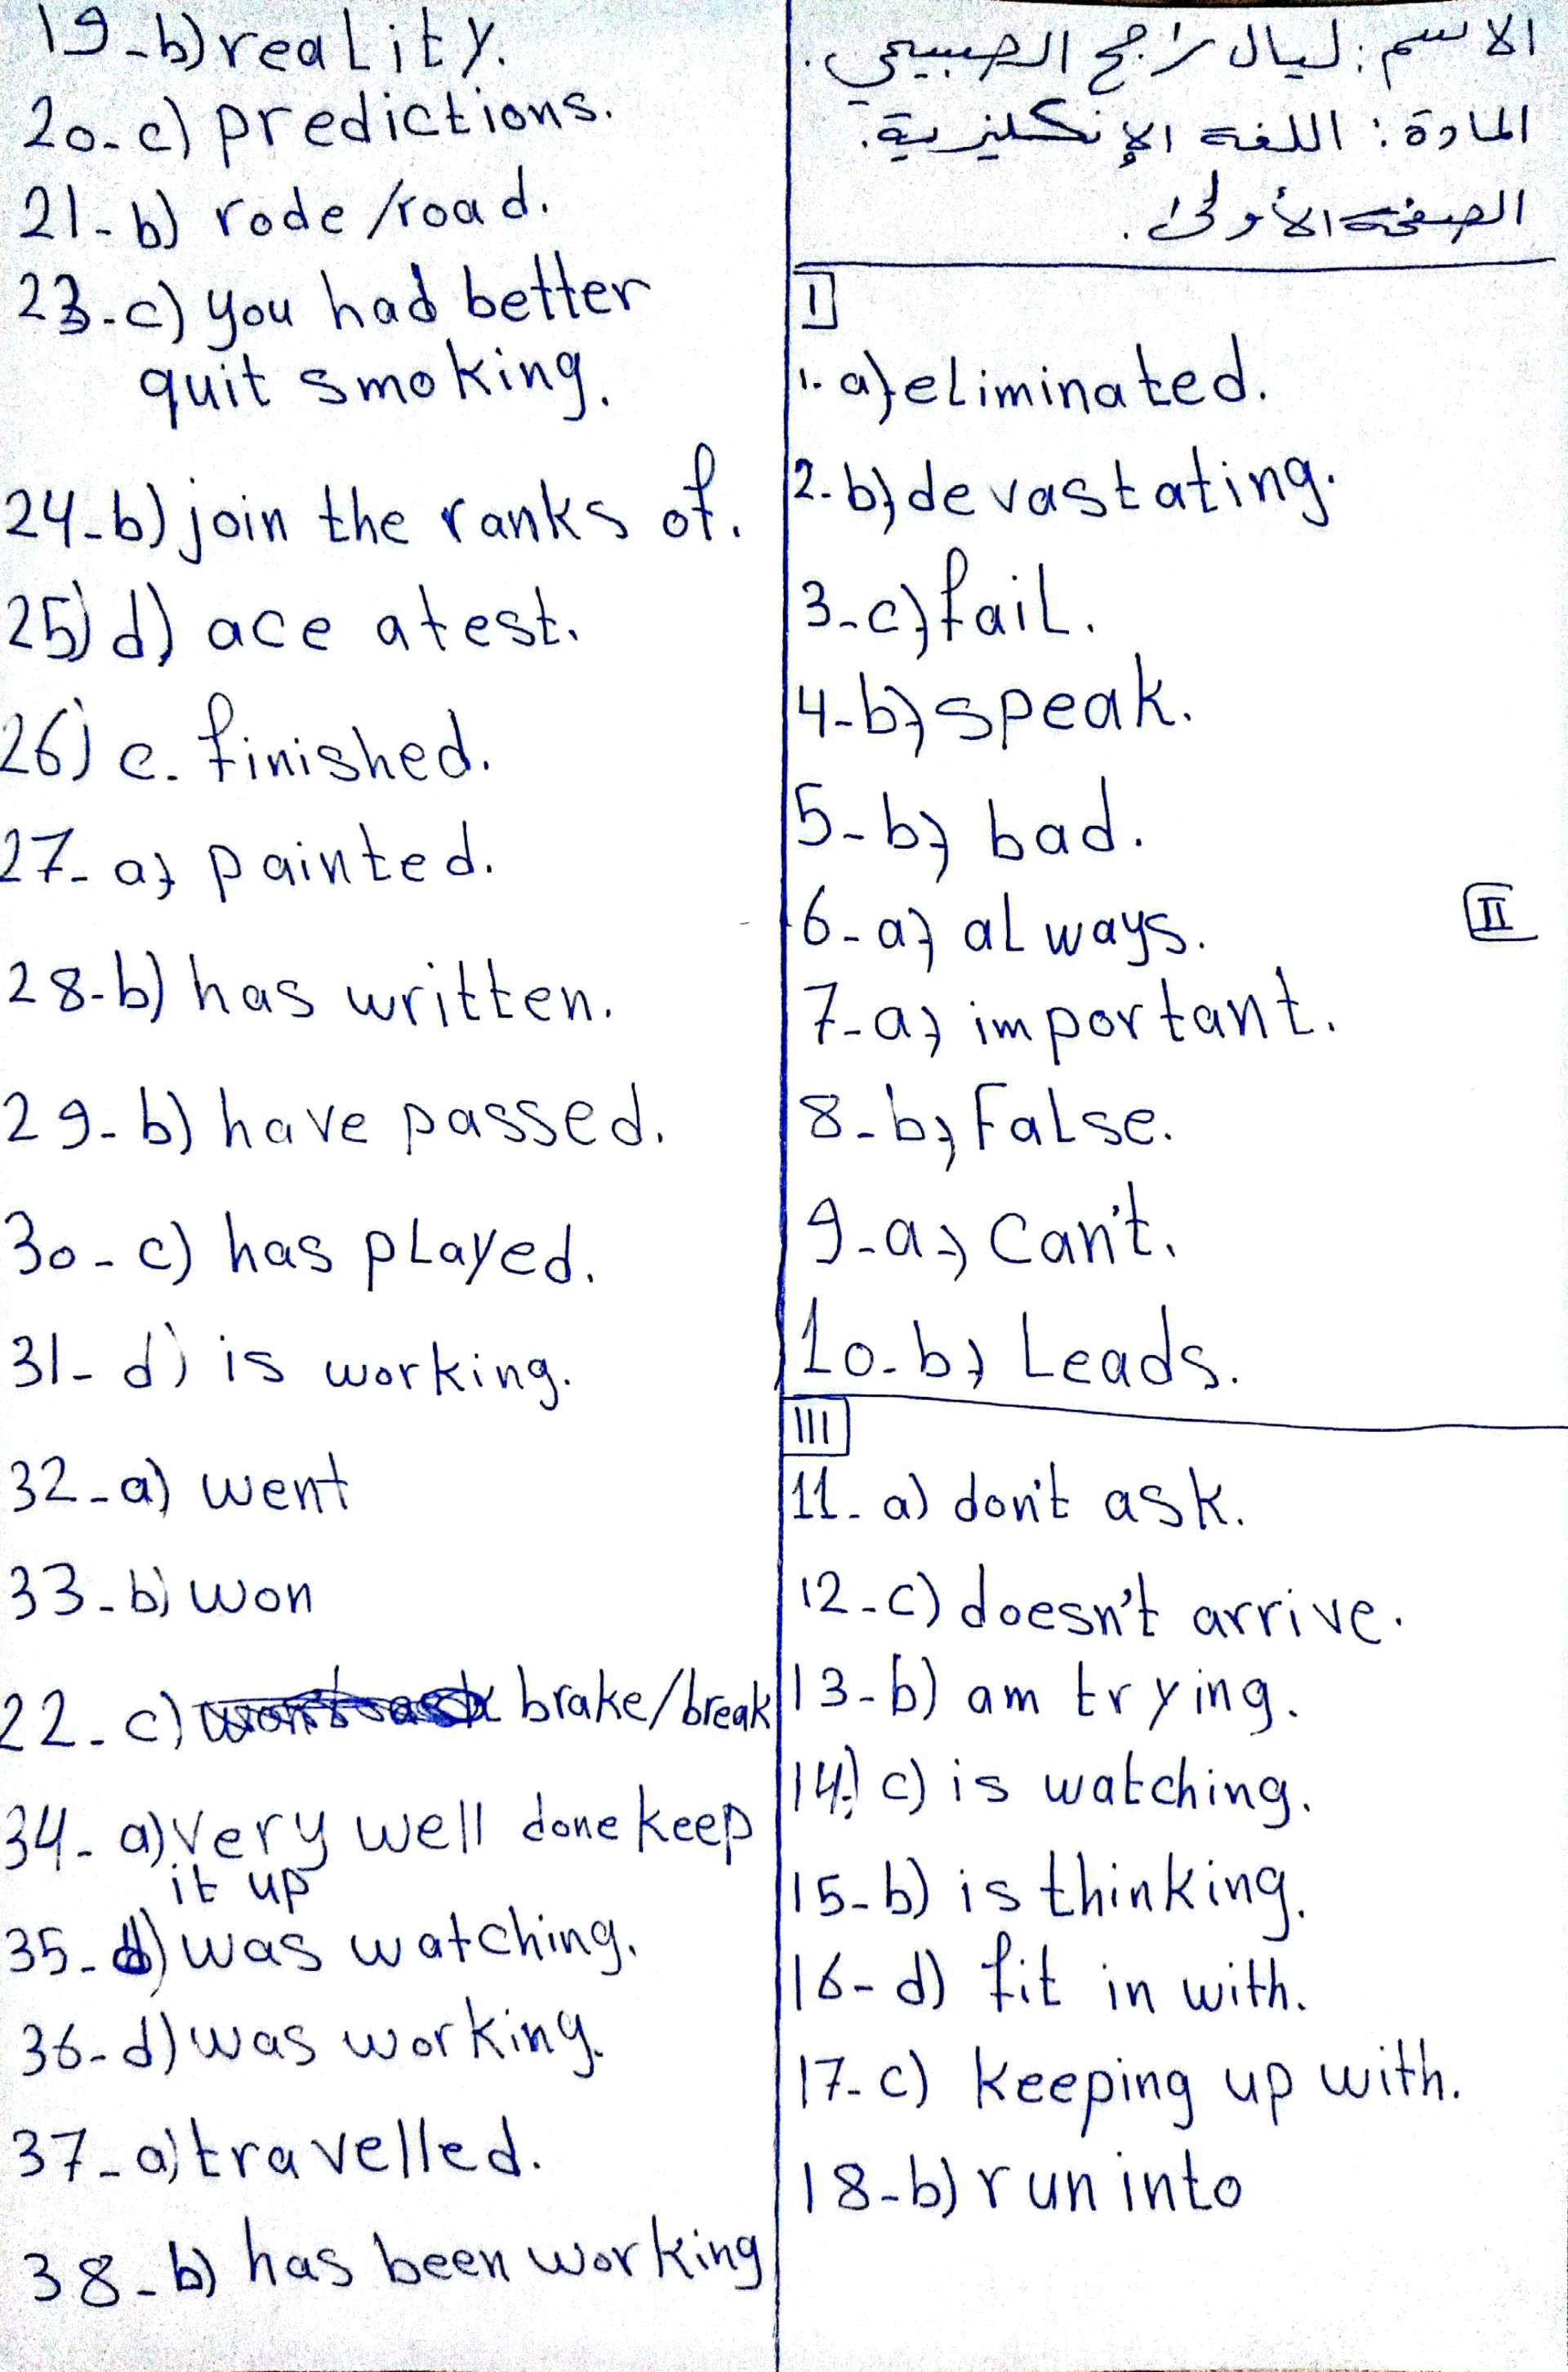 الاسم: ليال راجح الصبيحي.
المادة: اللغة الإنكليزية.
الصفحة الأولى.
I
1- a) eliminated.
2- b) devastating.
3- c) fail.
4- b) speak.
5- b) bad.
II
6- a) always.
7- a) important.
8- b) False.
9- a) Can't.
10- b) Leads.
III
11- a) don't ask.
12- c) doesn't arrive.
13- b) am trying.
14) c) is watching.
15- b) is thinking.
16- d) fit in with.
17- c) keeping up with.
18- b) run into
19- b) reality.
20- c) predictions.
21- b) rode/road.
23- c) you had better
quit smoking.
24- b) join the ranks of.
25) d) ace a test.
26) c. finished.
27- a) painted.
28- b) has written.
29- b) have passed.
30- c) has played.
31- d) is working.
32- a) went
33- b) won
22- c) brake/break
34- a) very well done keep
it up
35- d) was watching.
36- d) was working.
37- a) travelled.
38- b) has been working